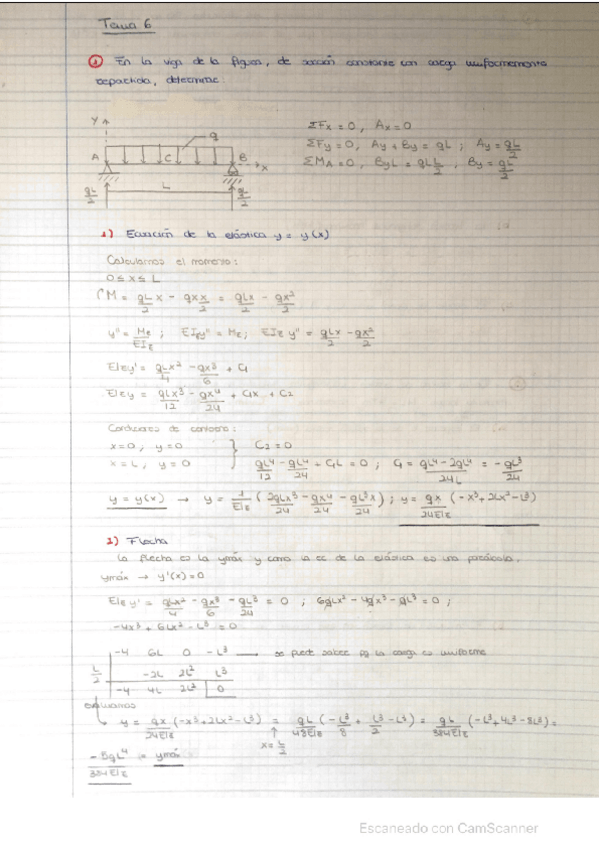 Tema 6
① En la viga de la figura, de sección constante con carga uniformemente
repartida, determinar
y
q
A C B x
L
qL/2 qL/2
ΣFx = 0, Ax = 0
ΣFy = 0, Ay + By = qL ; Ay = qL/2
ΣMA = 0, By L = qL L/2, By = qL/2
1) Ecuación de la elástica y = y(x)
Calculamos el momento:
0 ≤ x ≤ L
M = qL/2 x - qx x/2 = qLx/2 - qx²/2
y'' = Mz/EIz ; EIzy'' = Mz; EIz y'' = qLx/2 - qx²/2
EIzy' = qLx²/4 - qx³/6 + C1
EIzy = qLx³/12 - qx⁴/24 + C1x + C2
Condiciones de contorno:
x=0, y=0 } C2 = 0
x=L, y=0 } qL⁴/12 - qL⁴/24 + C1L = 0 ; C1 = qL⁴-2qL⁴/24L = -qL³/24
y = y(x) → y = 1/EIz (2qLx³/24 - qx⁴/24 - qL³x/24) ; y = qx/24EIz (-x³+2Lx²-L³)
2) Flecha
La flecha es la ymáx y como la ec de la elástica es una parábola.
ymáx → y'(x)=0
EIz y' = qLx²/4 - qx³/6 - qL³/24 = 0 ; 6qLx² - 4qx³ - qL³ = 0 ;
-4x³ + 6Lx² - L³ = 0
-4 6L 0 -L³ → se puede saber pq la carga es uniforme
L/2 -2L 2L² L³
-4 4L 2L² 0
y = qx/24EIz (-x³+2Lx²-L³) = qL/48EIz (-L³/8 + L³/2 - L³) = qL/384EIz (-L³+4L³-8L³) =
x = L/2
-5qL⁴/384EIz = ymáx
Escaneado con CamScanner